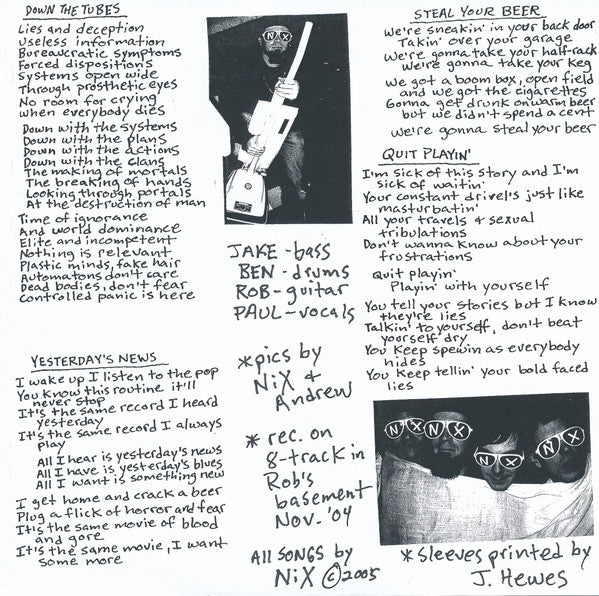 DOWN THE TUBES
Lies and deception
Useless information
Bureaucratic symptoms
Forced dispositions
Systems open wide
Through prosthetic eyes
No room for crying
when everybody dies
Down with the systems
Down with the plans
Down with the actions
Down with the clans
The making of mortals
The breaking of hands
Looking through portals
At the destruction of man
Time of ignorance
And world dominance
Elite and incompetent
Nothing is relevant
Plastic minds, fake hair
Automatons don't care
Dead bodies, don't fear
Controlled panic is here
YESTERDAY'S NEWS
I wake up I listen to the pop
You know this routine it'll
never stop
It's the same record I heard
yesterday
It's the same record I always
play
All I hear is yesterday's news
All I have is yesterday's blues
All I want is something new
I get home and crack a beer
Plug a flick of horror and fear
It's the same movie of blood
and gore
It's the same movie, I want
some more
NX
JAKE - bass
BEN - drums
ROB - guitar
PAUL - vocals
*pics by
NiX &
Andrew
* rec. on
8-track in
Rob's
basement
Nov. '04
All SONGS by
NiX ©2005
STEAL YOUR BEER
We're sneakin' in your back door
Takin' over your garage
We're gonna take your half-rack
We're gonna take your keg
We got a boom box, open field
and we got the cigarettes
Gonna get drunk on warm beer
but we didn't spend a cent
We're gonna steal your beer
QUIT PLAYIN'
I'm sick of this story and I'm
sick of waitin'
Your constant drivel's just like
masturbatin'
All your travels & sexual
tribulations
Don't wanna know about your
frustrations
Quit playin'
Playin' with yourself
You tell your stories but I know
they're lies
Talkin' to yourself, don't beat
yourself dry
You keep spewin as everybody
hides
You keep tellin' your bold faced
lies
NX NX NX NX
*sleeves printed by
J. Hewes